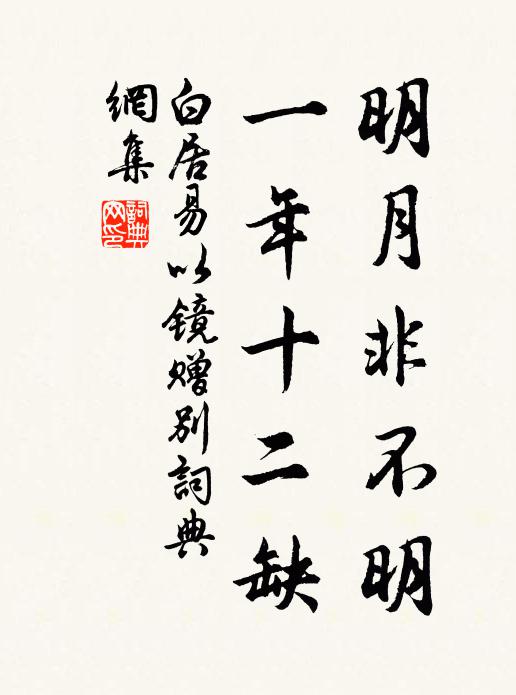 明月非不明
一年十二缺
白居易以镜赠别詞典
網集
詞典
网印